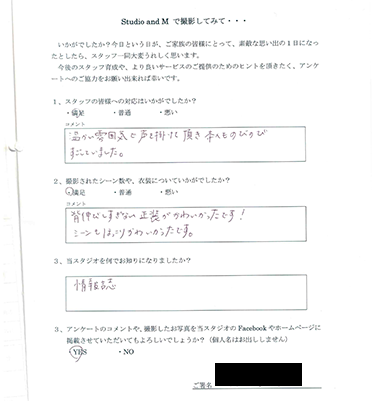 Studio and M で撮影してみて・・・
いかがでしたか？今日という日が、ご家族の皆様にとって、素敵な思い出の１日になっ
たとしたら、スタッフ一同大変うれしく思います。
今後のスタッフ育成や、より良いサービスのご提供のためのヒントを頂きたく、アンケ
ートへのご協力をお願い出来れば幸いです。
１、スタッフの皆様への対応はいかがでしたか？
・満足 ・普通 ・悪い
コメント
温かい雰囲気で声を掛けて頂き本人ものびのび
すごしていました。
２、撮影されたシーン数や、衣装についていかがでしたか？
・満足 ・普通 ・悪い
コメント
背伸びしすぎない正装がかわいかったです！
シーンもばっちりかわいかったです。
３、当スタジオを何でお知りになりましたか？
情報誌
３、アンケートのコメントや、撮影したお写真を当スタジオの Facebook やホームページに
掲載させていただいてもよろしいでしょうか？（個人名はお出ししません）
YES ・NO
ご署名